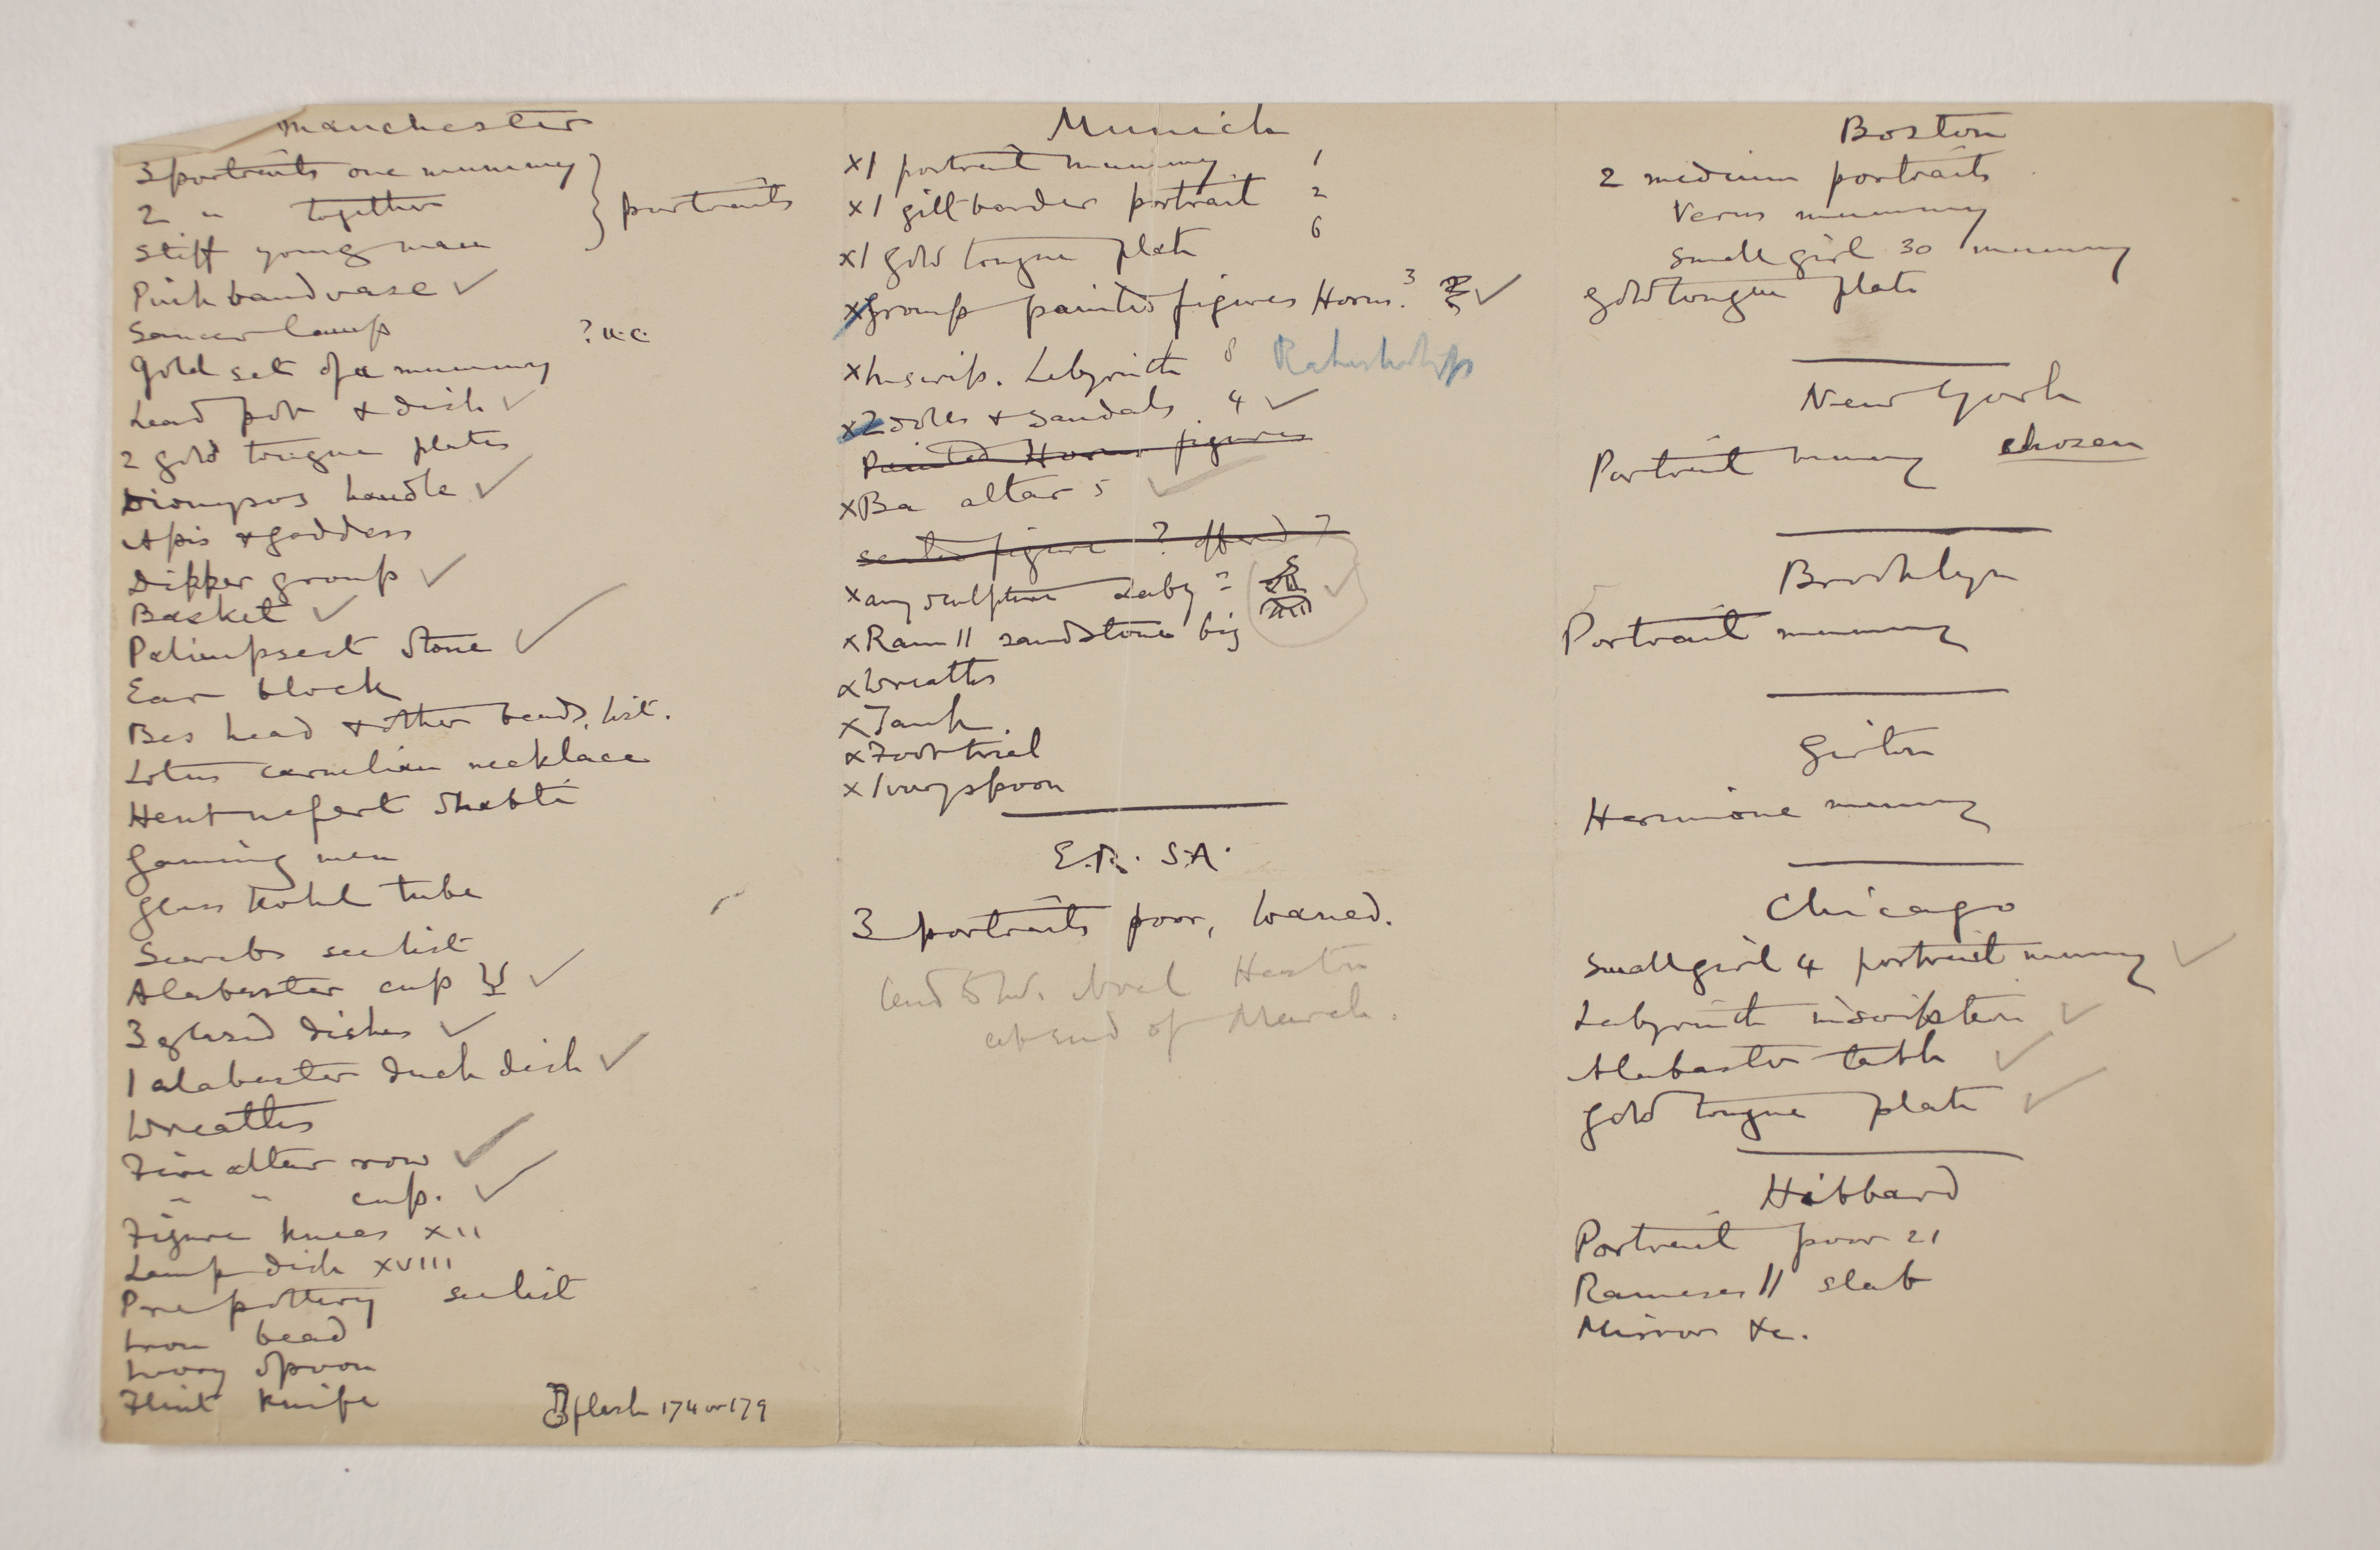 Manchester
3 portraits one mummy
2 " together
stiff young man
portraits
Pink band vase ✓
Saucer lamp ? U.C.
Gold set of a mummy
Lead pot & dish ✓
2 gold tongue plates
Dionysos handle ✓
Apis & goddess
Dipper group ✓
Basket ✓
Palimpsest stone ✓
Ear block
Bes head & other beads, list.
Lotus carnelian necklace
Hent nefert Shabti
Gaming men
Glass kohl tube
Scarabs see list
Alabaster cup ✓
3 glazed dishes ✓
1 alabaster duck dish ✓
Wreaths
Fire altar row ✓
" " cup. ✓
Figure knees XII
Lamp dish XVIII
Pre pottery see list
Iron bead
Ivory spoon
Flint knife
flesh 174 or 179
Munich
x1 portrait mummy 1
x1 gilt border portrait 2
x1 gold tongue plate 6
x Group painted figures Horus. 3 ✓
x Inscrip. Labyrinth 8
x 2 soles & sandals 4 ✓
Painted Horus figures
x Ba altar 5 ✓
seated figure ? offered 7
x any sculpture Laby = ✓
x Ram II sandstone big
x Wreaths
x Tank
x Foot trial
x Ivory spoon
E.R. S.A.
3 portraits poor, waxed.
at end of March.
Boston
2 medium portraits
Verus mummy
Small girl 30 mummy
gold tongue plate
New York
Portrait mummy chosen
Brooklyn
Portrait mummy
Girton
Hermione mummy
Chicago
Small girl 4 portrait mummy ✓
Labyrinth inscription ✓
Alabaster table ✓
gold tongue plate ✓
Hibbard
Portrait poor 21
Rameses II slab
Mirror &c.